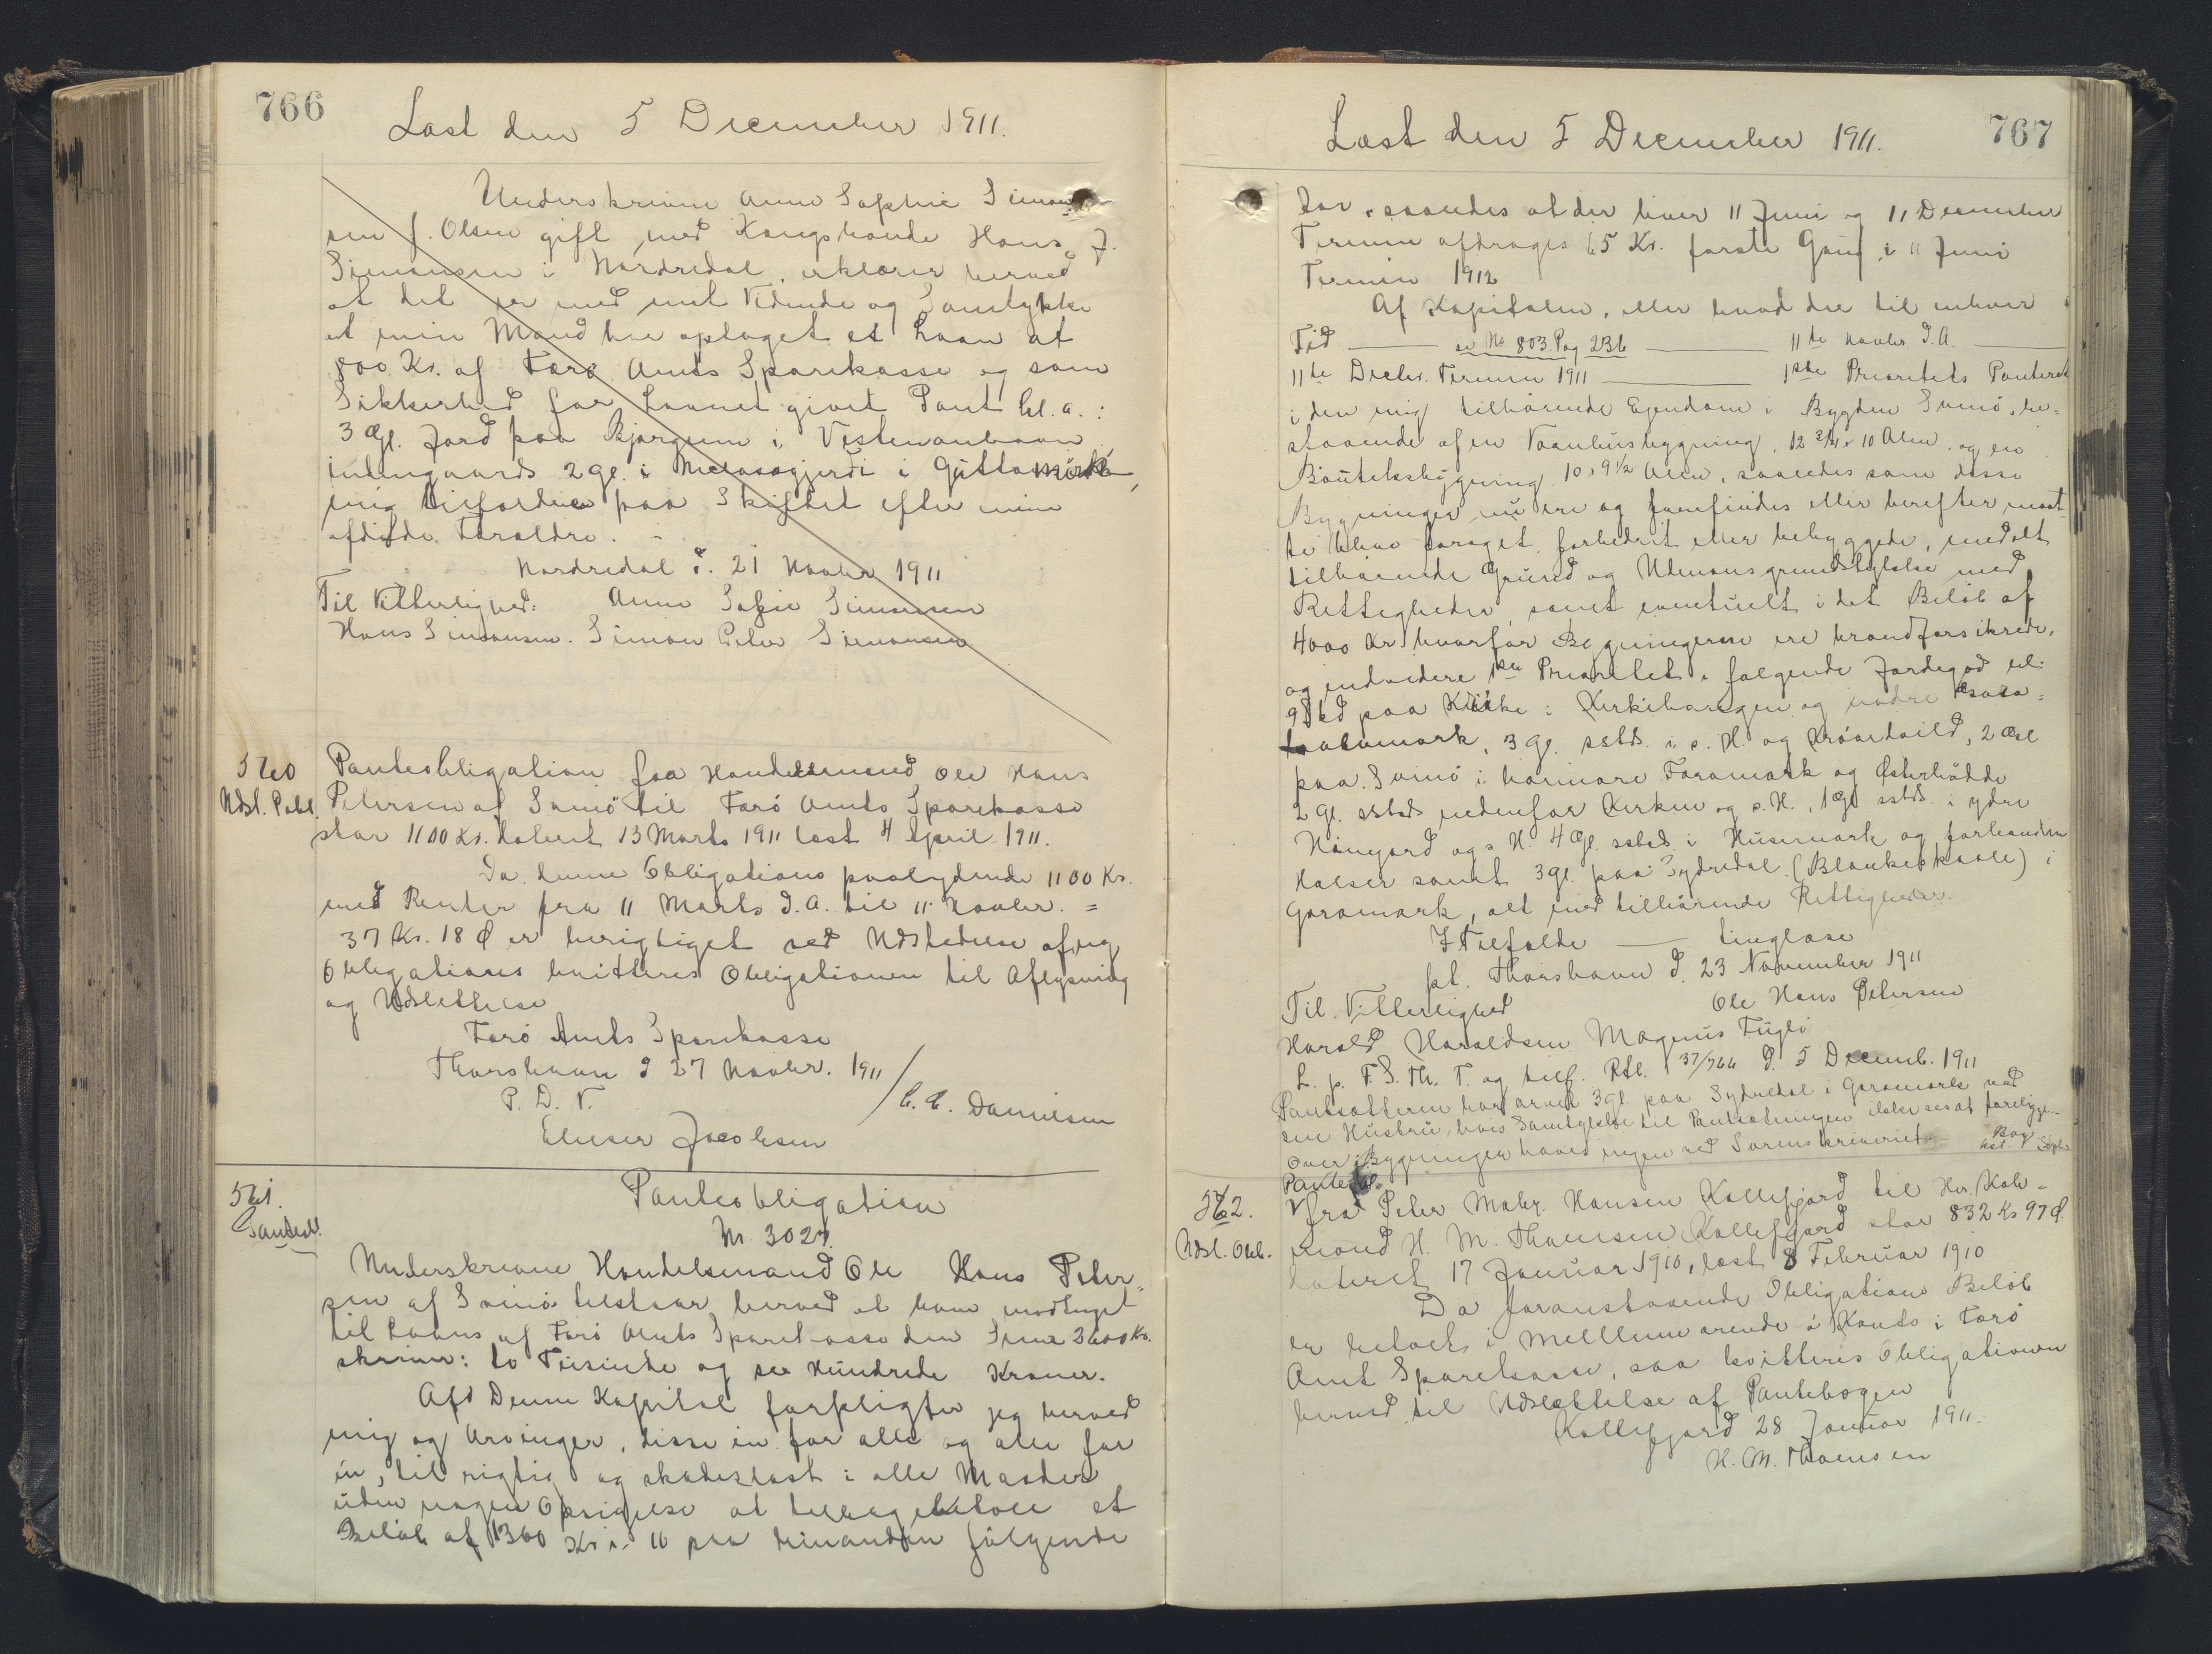 766
Læst den 5 December 1911.
Underskrevne Anne Sophie Simon
sen f. Olsen gift med Kongsbonde Hans J.
Simonsen i Nordredal, erklærer herved
at det er med mit Vidende og Samtykke
at min Mand har optaget et Laan at
800 Kr. af Færø Amts Sparekasse og som
Sikkerhed for Laanet givet Pant bl. a.:
3 Gl. Jord paa Bjørgum i Vestmanhavn
indengaards 2 gl. i
mig tilfalden paa Skiftet efter mine
afdøde Forældre. -
Nordredal d. 21 Novbr 1911
Til Vitterlighed: Anne Sofie Simonsen
Hans Simonsen. Simon Peter Simonsen
560
Udsl. Pobl.
Panteobligation fra Handelsmand Ole Hans
Petersen af Svinö til Færö Amts Sparekasse
stor 1100 Kr. dateret 13 Marts 1911 læst 4 April 1911.
Da denne Obligations paalydende 1100 Kr.
med Renter fra 11 Marts d. A. til 11 Novbr. =
37 Kr. 18 Ø er berigtiget ved Udstedelse af ny
Obligation kvitteres Obligationen til Aflysning
og Udslettelse
Færö Amts Sparekasse
Thorshavn d 27 Novbr. 1911
P. D. V. / C. C. Danielsen
Elieser Jacobsen
561.
Panteobl.
Panteobligation
Nr 3027.
Underskrevne Handelsmand Ole Hans Peter-
sen af Svinö tilstaar herved at have modtaget
til Laans af Færö Amts Sparekasse den Sum 2600 Kr.
skriver: to Tusinde og sex Hundrede Kroner.
Afd Denne Kapital forpligter jeg herved
mig og Arvinger, disse en for alle og alle for
en, til rigtig og skadesløst i alle Maader
uden nogen Opsigelse at tilbagebetale et
Beløb af 1300 Kr i 10 paa hinanden følgende
767
Læst den 5 December 1911.
Aar, saaledes at der hver 11 Juni og 11 December
Termin afdrages 65 Kr. første Gang i 11 Juni
Termin 1912
Af Kapitalen, eller hvad der til enhver
Tid ——— se No 803 Pag 236 ——— 11te Novbr. d. A. ———
11te Decbr. Termin 1911 ——— 1ste Prioritets Panteret
i den mig tilhørende Ejendom i Bygden Svinö, be=
staaende af en Vaanhusbygning, 12 3/4 x 10 Alen, og en
Boutiksbygning 10 x 9 1/2 Alen, saaledes som disse
Bygninger nu ere og forefindes eller herefter maat-
te blive forøget, forbedret eller bebyggede, med alt
tilhørende Grund og Udenomsgrundstykke med
Rettigheder, samt eventuelt i det Beløb af
4000 Kr hvorfor Bygningerne ere brandforsikrede,
og endvidere 1ste Prioritet i følgende Jordegods
paa Kirke i Kirkehavgen og
mark, 3 Gl. sstds. i s. H. og
paa Svinö i Faramark og Østerbødde
2 Gl. sstds nedenfor Kirken og s. H., 1 Gl sstds. i ydre
Heimgard og s H. 4 Gl. sstds. i Húsemark og
samt 3 Gl. paa Sydredal i
Goramark, alt med tilhørende Rettigheder.
I Tilfælde ——— tinglæse
pt. Thorshavn d. 23 November 1911
Til Vitterlighed Ole Hans Petersen
Harald Haraldsen Magnus Fuglö
L. p. F. S. Th. T. og tilf. Rtl. 37/766 d. 5 Decemb. 1911
Pantsætteren har arvet 3 Gl. paa Sydredal i Goramark med
sin Hustru, hvis Samtykke til Pantsætningen ikke ses at foreligge.
Over Bygningen haves ingen ved Sorenskriveriet
562.
Udsl. Obl.
Panteobl.
fra Peter Mohr Hansen Kollefjord til Hr. Kob-
mand H. M. Thomsen Kollefjord stor 832 Kr 97 Ø.
dateret 17 Januar 1910, læst 8 Februar 1910
Da foranstaaende Obligations Beløb
er betalt i Mellemværende á Konto i Færö
Amt Sparekasse, saa kvitteres Obligationen
herved til Udslettelse af Pantebogen
Kollefjord 28 Januar 1911.
H. M. Thomsen